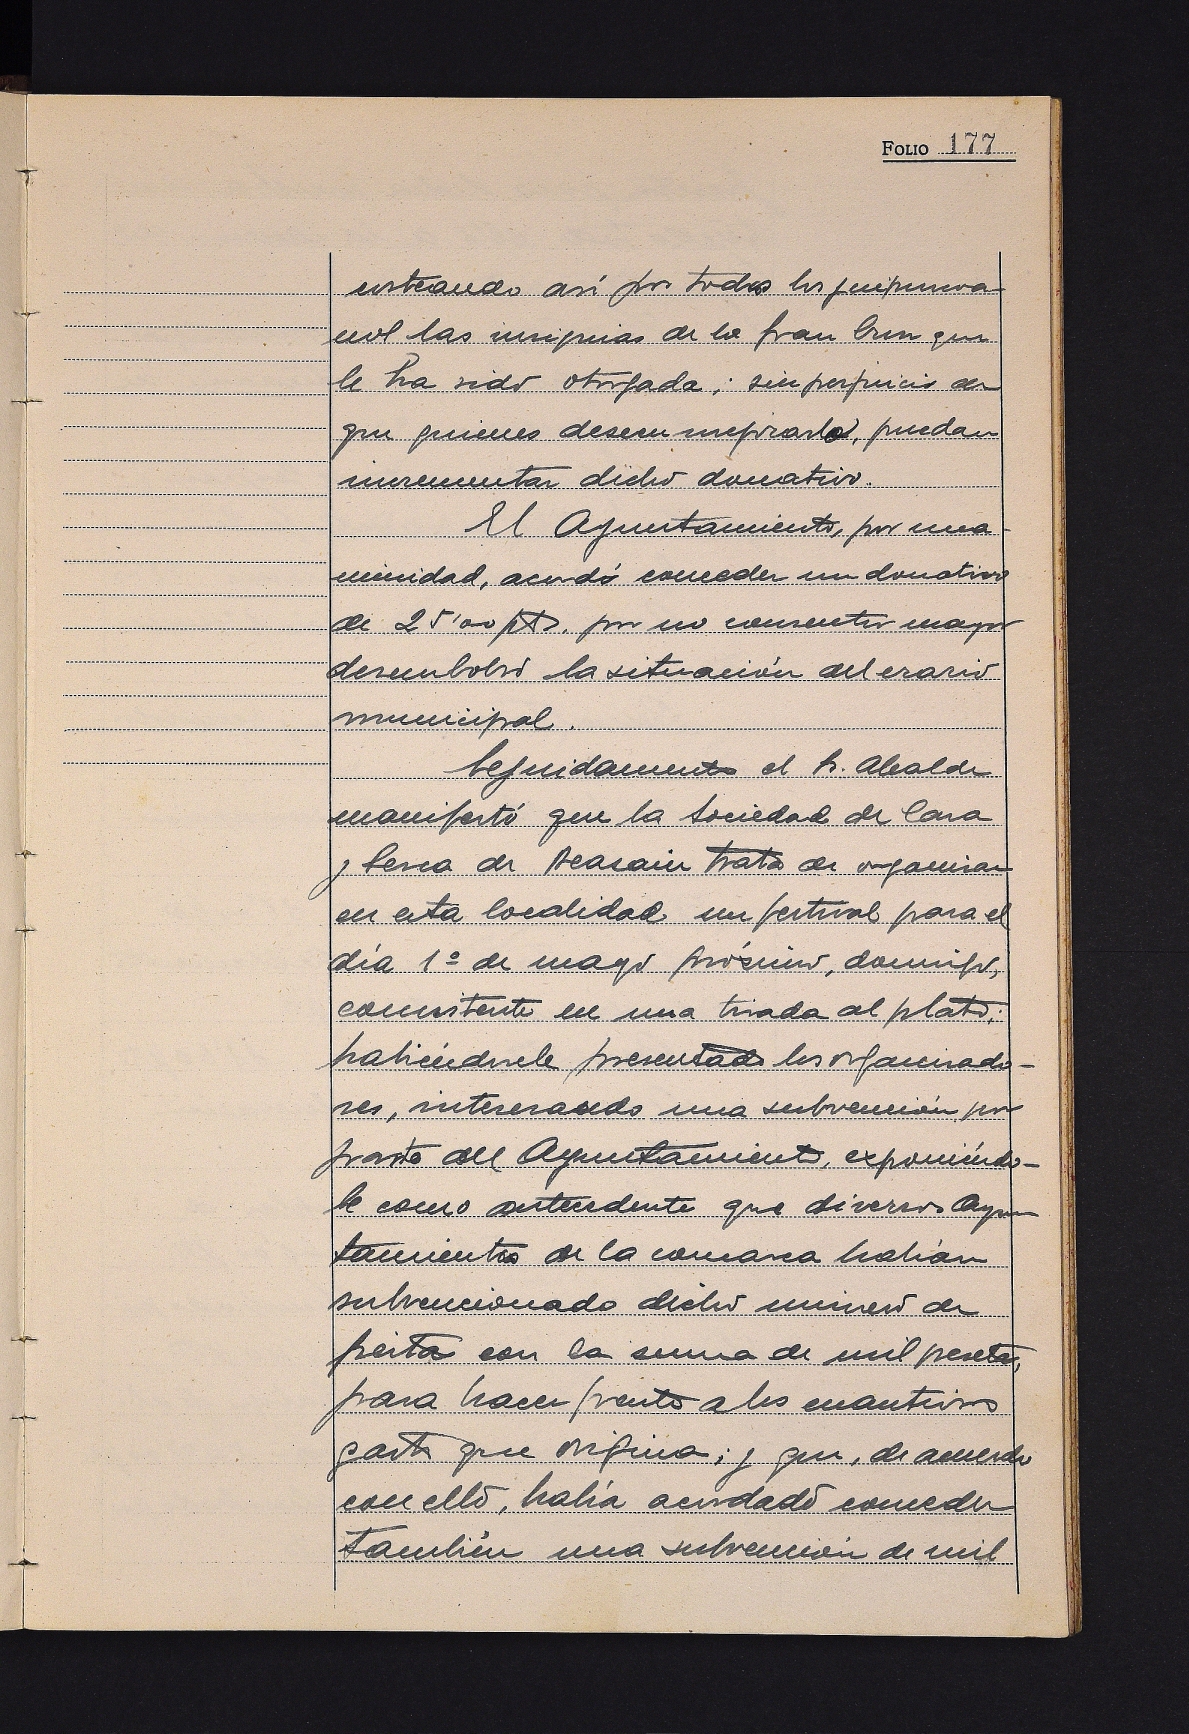 FOLIO 177
costeando así por todos los guipuzcoa-
nos las insignias de la Gran Cruz que
le ha sido otorgada; sin perjuicio de
que quienes deseen mejorarlo, puedan
incrementar dicho donativo.
El Ayuntamiento, por una-
nimidad, acordó conceder un donativo
de 25'00 pts. por no consentir mayor
desembolso la situación del erario
municipal.
Seguidamente el Sr. Alcalde
manifestó que la Sociedad de Caza
y Pesca de Beasain trata de organizar
en esta localidad un festival para el
día 1º de mayo próximo, domingo,
consistente en una tirada al plato;
habiéndosele presentado los organizado-
res, interesando una subvención por
parte del Ayuntamiento, exponiéndo-
le como antecedente que diversos Ayun
tamientos de la comarca habían
subvencionado dicho número de
fiesta con la suma de mil pesetas,
para hacer frente a los cuantiosos
gastos que origina; y que, de acuerdo
con ello, había acordado conceder
también una subvención de mil